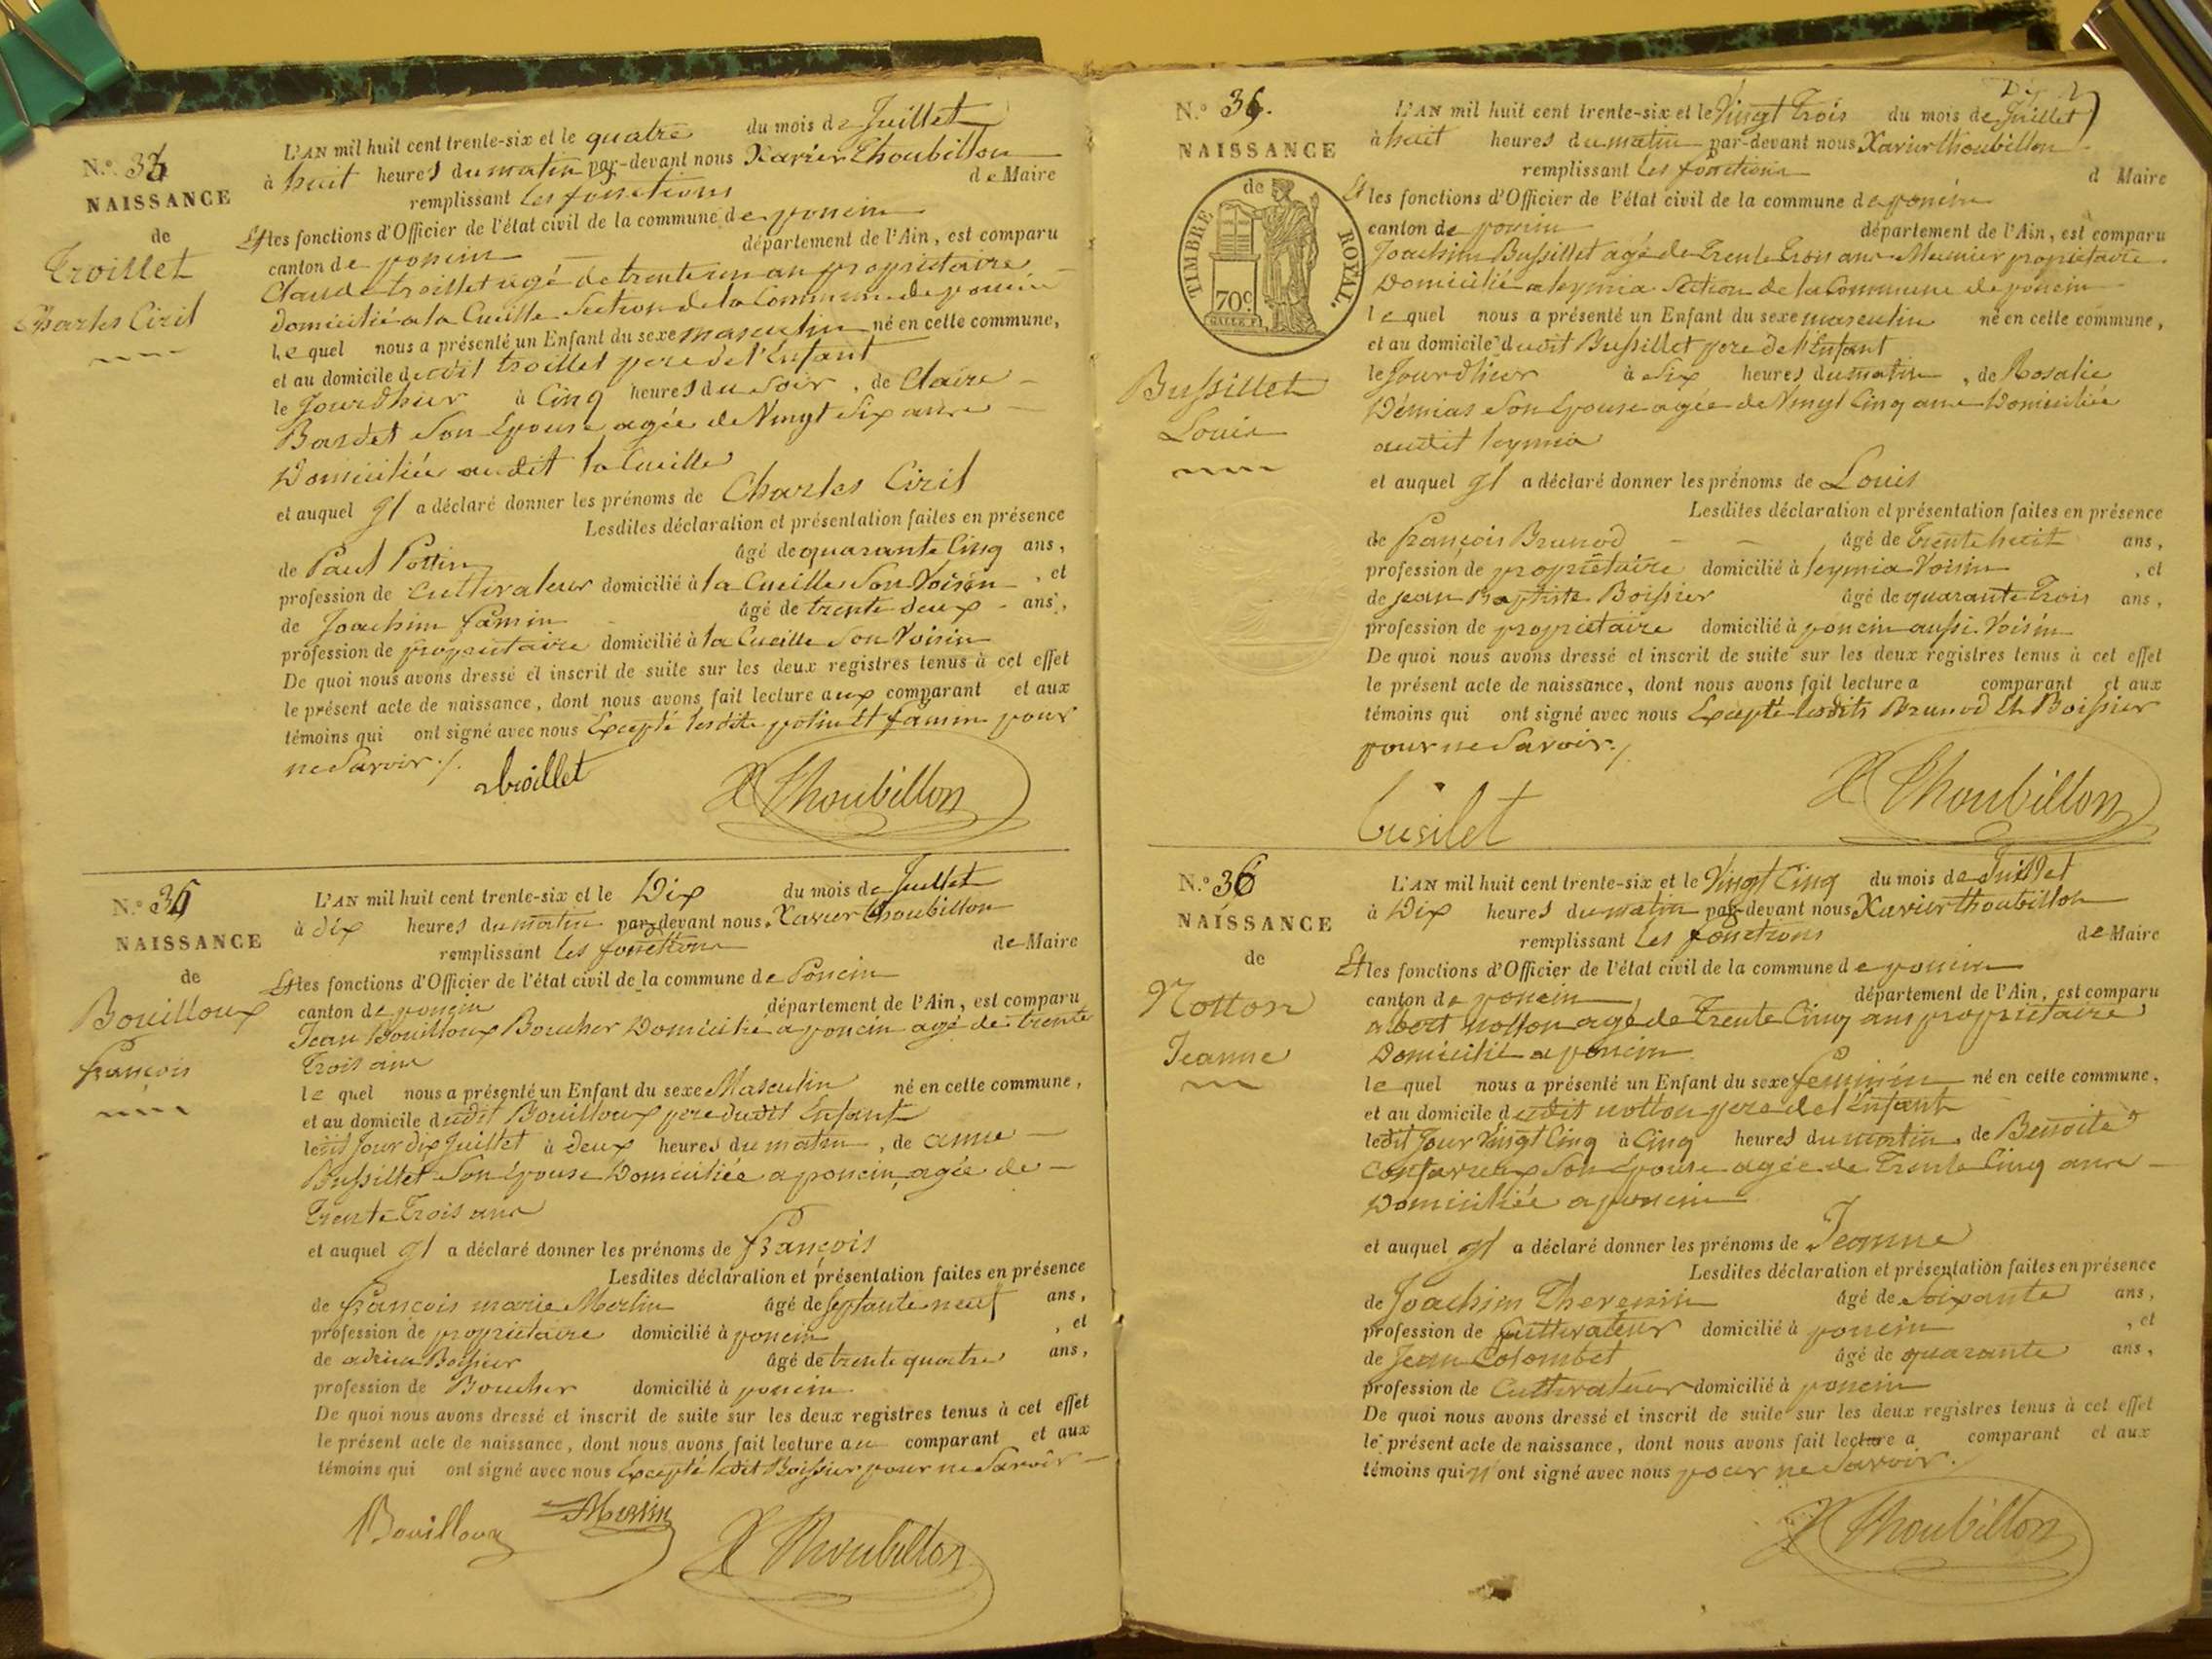 N.o 33
NAISSANCE
de
Troillet
Charles Ciril
L'AN mil huit cent trente-six et le quatre du mois de Juillet
à huit heures du matin par-devant nous Xavier Thoubillon
remplissant les fonctions de Maire
Et les fonctions d'Officier de l'état civil de la commune de poncin
canton de poncin département de l'Ain, est comparu
Claude troillet agé de trente un an propriétaire
domicilié a la Cueille Section de la Commune de poncin
le quel nous a présenté un Enfant du sexe masculin né en cette commune,
et au domicile dudit troillet pere de l'Enfant
le Jourdhier à Cinq heures du Soir, de Claire
Bardet Son Epouse agée de Vingt Six ans
Domiciliée audit la Cueille
et auquel Il a déclaré donner les prénoms de Charles Ciril
Lesdites déclaration et présentation faites en présence
de Paul Pottin âgé de quarante Cinq ans,
profession de Cultivateur domicilié à la Cueille Son Voisin, et
de Joachim famin âgé de trente deux ans,
profession de propriétaire domicilié à la Cueille Son Voisin
De quoi nous avons dressé et inscrit de suite sur les deux registres tenus à cet effet
le présent acte de naissance, dont nous avons fait lecture aux comparant et aux
témoins qui ont signé avec nous Excepté lesdits potin Et famin pour
ne Savoir ./.
troillet
X Thoubillon
N.o 34
NAISSANCE
de
Bouilloux
françois
L'AN mil huit cent trente-six et le Dix du mois de Juillet
à dix heures du matin par-devant nous Xavier Thoubillon
remplissant les fonctions de Maire
Et les fonctions d'Officier de l'état civil de la commune de Poncin
canton de poncin département de l'Ain, est comparu
Jean Bouilloux Boucher Domicilié a poncin agé de trente
Trois ans
le quel nous a présenté un Enfant du sexe Masculin né en cette commune,
et au domicile dudit Bouilloux pere dudit Enfant
ledit Jour dix Juillet à deux heures du matin, de anne
Bussillet Son Epouse Domiciliée a poncin agée de
Trente Trois ans
et auquel Il a déclaré donner les prénoms de françois
Lesdites déclaration et présentation faites en présence
de françois marie Merlin âgé de Septante neuf ans,
profession de propriétaire domicilié à poncin, et
de adrien Boissier âgé de trente quatre ans,
profession de Boucher domicilié à poncin
De quoi nous avons dressé et inscrit de suite sur les deux registres tenus à cet effet
le présent acte de naissance, dont nous avons fait lecture au comparant et aux
témoins qui ont signé avec nous Excepté ledit Boissier pour ne Savoir
Bouilloux
Merlin
X Thoubillon
N.o 35.
NAISSANCE
de
TIMBRE ROYAL.
70c
Bussillet
Louis
L'AN mil huit cent trente-six et le Vingt Trois du mois de Juillet
à huit heures du matin par-devant nous Xavier Thoubillon
remplissant les fonctions d Maire
Et les fonctions d'Officier de l'état civil de la commune de poncin
canton de poncin département de l'Ain, est comparu
Joachim Bussillet agé de Trente Trois ans Meunier propriétaire
Domicilié a leymia Section de la Commune de poncin
le quel nous a présenté un Enfant du sexe masculin né en cette commune,
et au domicile dudit Bussillet pere de l'Enfant
le Jourdhier à Six heures du matin, de Rosalie
Démias Son Epouse agée de Vingt Cinq ans Domiciliée
audit leymia
et auquel Il a déclaré donner les prénoms de Louis
Lesdites déclaration et présentation faites en présence
de françois Brunod âgé de Trente huit ans,
profession de propriétaire domicilié à leymia Voisin, et
de jean Baptiste Boissier âgé de quarante Trois ans,
profession de propriétaire domicilié à poncin aussi Voisin
De quoi nous avons dressé et inscrit de suite sur les deux registres tenus à cet effet
le présent acte de naissance, dont nous avons fait lecture a comparant et aux
témoins qui ont signé avec nous Excepté lesdits Brunod Et Boissier
pour ne Savoir ./.
busilet
X Thoubillon
N.o 36
NAISSANCE
de
Notton
Jeanne
L'AN mil huit cent trente-six et le Vingt Cinq du mois de Juillet
à Dix heures du matin par-devant nous Xavier Thoubillon
remplissant les fonctions de Maire
Et les fonctions d'Officier de l'état civil de la commune de poncin
canton de poncin département de l'Ain, est comparu
albert notton agé de Trente Cinq ans propriétaire
Domicilié a poncin
le quel nous a présenté un Enfant du sexe feminin né en cette commune,
et au domicile dudit notton pere de l'Enfant
ledit Jour Vingt Cinq à Cinq heures du matin, de Benoite
Confavreux Son Epouse agée de Trente Cinq ans
Domiciliée a poncin
et auquel Il a déclaré donner les prénoms de Jeanne
Lesdites déclaration et présentation faites en présence
de Joachim Thevenin âgé de Soixante ans,
profession de Cultivateur domicilié à poncin, et
de Jean Colombet âgé de quarante ans,
profession de Cultivateur domicilié à poncin
De quoi nous avons dressé et inscrit de suite sur les deux registres tenus à cet effet
le présent acte de naissance, dont nous avons fait lecture a comparant et aux
témoins qui n'ont signé avec nous pour ne Savoir.
X Thoubillon